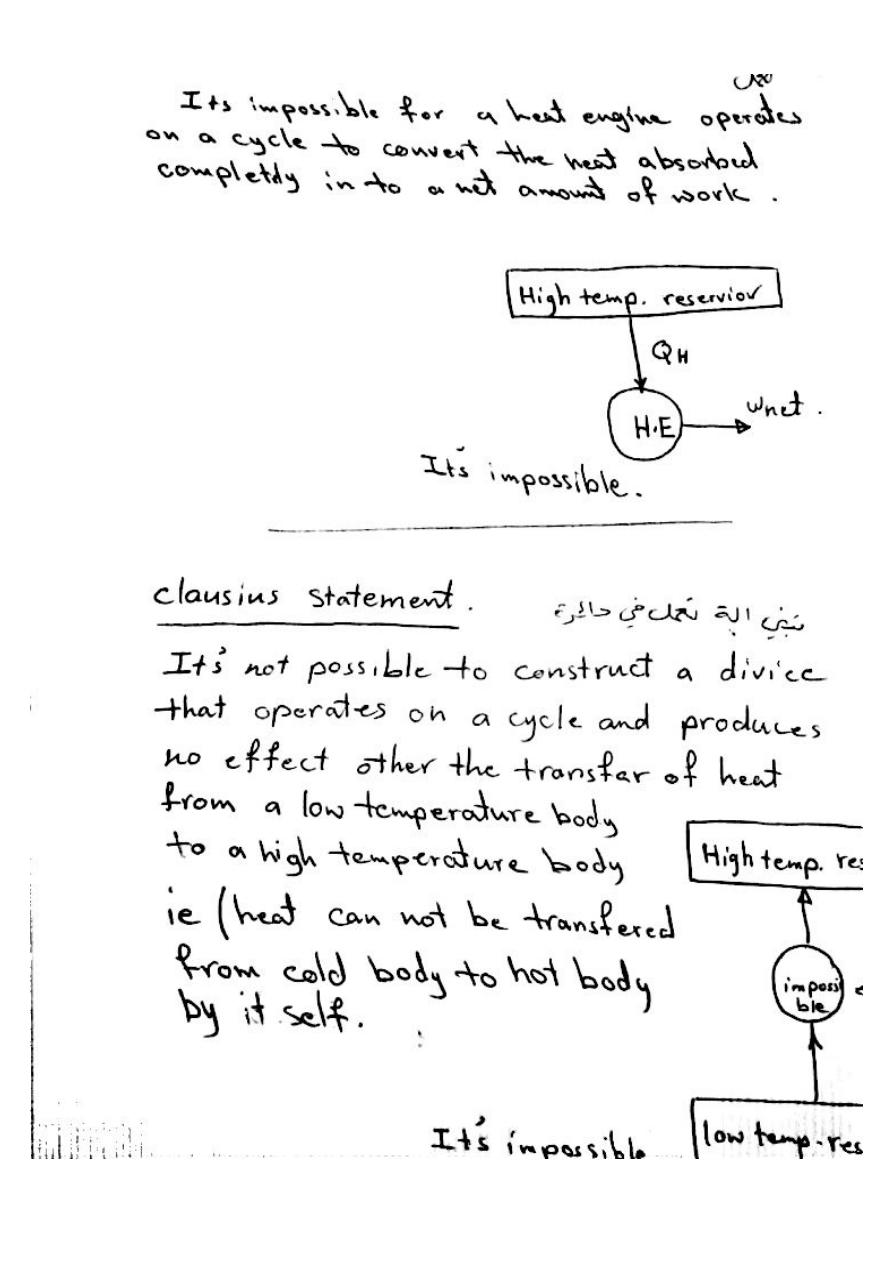 Its impossible for a heat engine operates
on a cycle to convert the heat absorbed
completdy in to a net amount of work .
High temp. reservior
QH
H.E
Wnet .
It's impossible.
clausius statement .
تبني الة تعمل في دائرة
It's not possible to construct a divice
that operates on a cycle and produces
no effect other the transfar of heat
from a low temperature body
to a high temperature body
ie (heat can not be transfered
from cold body to hot body
by it self.
High temp. res
impossi
ble
low temp. res
It's impossible